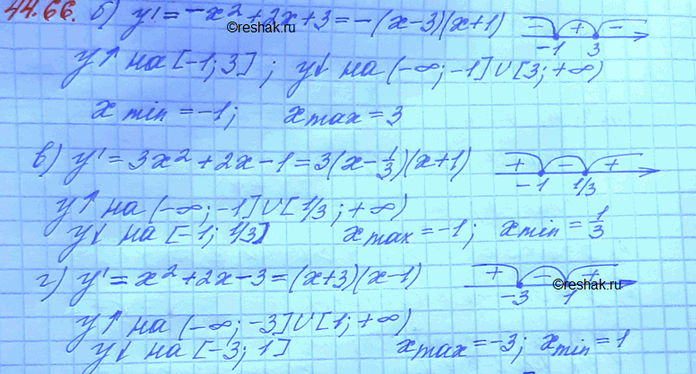 44.66. б) y' = -x² + 2x + 3 = -(x-3)(x+1) - + -
©reshak.ru -1 3
y↑ на [-1; 3]; y↓ на (-∞; -1]∪[3; +∞)
x min = -1; x max = 3
©reshak.ru
в) y' = 3x² + 2x - 1 = 3(x - 1/3)(x+1) + - +
-1 1/3
y↑ на (-∞; -1]∪[1/3; +∞)
y↓ на [-1; 1/3] x max = -1; x min = 1/3
г) y' = x² + 2x - 3 = (x+3)(x-1) + - +
©reshak.ru
-3 1
y↑ на (-∞; -3]∪[1; +∞)
y↓ на [-3; 1] x max = -3; x min = 1
©reshak.ru